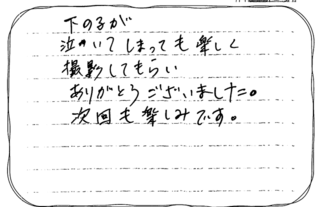 下の子が
泣いてしまっても楽しく
撮影してもらい
ありがとうございました。
次回も楽しみです。